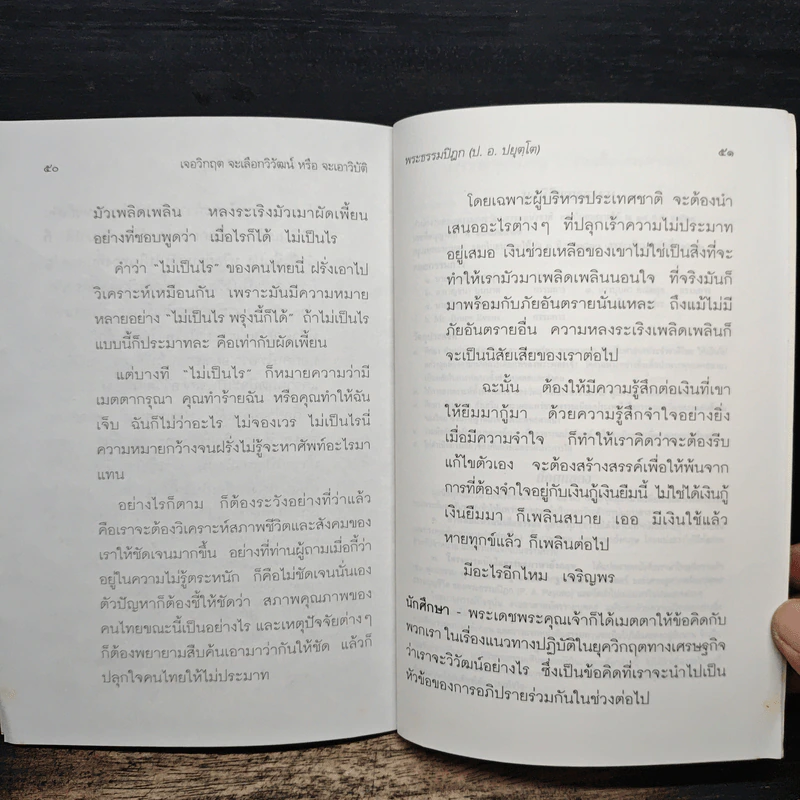 ๕๐
เจอวิกฤต จะเลือกวิวัฒน์ หรือ จะเอาวิบัติ
มัวเพลิดเพลิน หลงระเริงมัวเมาผัดเพี้ยน
อย่างที่ชอบพูดว่า เมื่อไรก็ได้ ไม่เป็นไร
คำว่า "ไม่เป็นไร" ของคนไทยนี่ ฝรั่งเอาไป
วิเคราะห์เหมือนกัน เพราะมันมีความหมาย
หลายอย่าง "ไม่เป็นไร พรุ่งนี้ก็ได้" ถ้าไม่เป็นไร
แบบนี้ก็ประมาทละ คือเท่ากับผัดเพี้ยน
แต่บางที "ไม่เป็นไร" ก็หมายความว่ามี
เมตตากรุณา คุณทำร้ายฉัน หรือคุณทำให้ฉัน
เจ็บ ฉันก็ไม่ว่าอะไร ไม่จองเวร ไม่เป็นไรนี่
ความหมายกว้างจนฝรั่งไม่รู้จะหาศัพท์อะไรมา
แทน
อย่างไรก็ตาม ก็ต้องระวังอย่างที่ว่าแล้ว
คือเราจะต้องวิเคราะห์สภาพชีวิตและสังคมของ
เราให้ชัดเจนมากขึ้น อย่างที่ท่านผู้ถามเมื่อกี้ว่า
อยู่ในความไม่รู้ตระหนัก ก็คือไม่ชัดเจนนั่นเอง
ตัวปัญหาก็ต้องชี้ให้ชัดว่า สภาพคุณภาพของ
คนไทยขณะนี้เป็นอย่างไร และเหตุปัจจัยต่างๆ
ก็ต้องพยายามสืบค้นเอามาว่ากันให้ชัด แล้วก็
ปลุกใจคนไทยให้ไม่ประมาท
พระธรรมปิฎก (ป. อ. ปยุตฺโต)
๕๑
โดยเฉพาะผู้บริหารประเทศชาติ จะต้องนำ
เสนออะไรต่างๆ ที่ปลุกเร้าความไม่ประมาท
อยู่เสมอ เงินช่วยเหลือของเขาไม่ใช่เป็นสิ่งที่จะ
ทำให้เรามัวมาเพลิดเพลินนอนใจ ที่จริงมันก็
มาพร้อมกับภัยอันตรายนั่นแหละ ถึงแม้ไม่มี
ภัยอันตรายอื่น ความหลงระเริงเพลิดเพลินก็
จะเป็นนิสัยเสียของเราต่อไป
ฉะนั้น ต้องให้มีความรู้สึกต่อเงินที่เขา
ให้ยืมมากู้มา ด้วยความรู้สึกจำใจอย่างยิ่ง
เมื่อมีความจำใจ ก็ทำให้เราคิดว่าจะต้องรีบ
แก้ไขตัวเอง จะต้องสร้างสรรค์เพื่อให้พ้นจาก
การที่ต้องจำใจอยู่กับเงินกู้เงินยืมนี้ ไม่ใช่ได้เงินกู้
เงินยืมมา ก็เพลินสบาย เออ มีเงินใช้แล้ว
หายทุกข์แล้ว ก็เพลินต่อไป
มีอะไรอีกไหม เจริญพร
นักศึกษา - พระเดชพระคุณเจ้าก็ได้เมตตาให้ข้อคิดกับ
พวกเรา ในเรื่องแนวทางปฏิบัติในยุควิกฤตทางเศรษฐกิจ
ว่าเราจะวิวัฒน์อย่างไร ซึ่งเป็นข้อคิดที่เราจะนำไปเป็น
หัวข้อของการอภิปรายร่วมกันในช่วงต่อไป